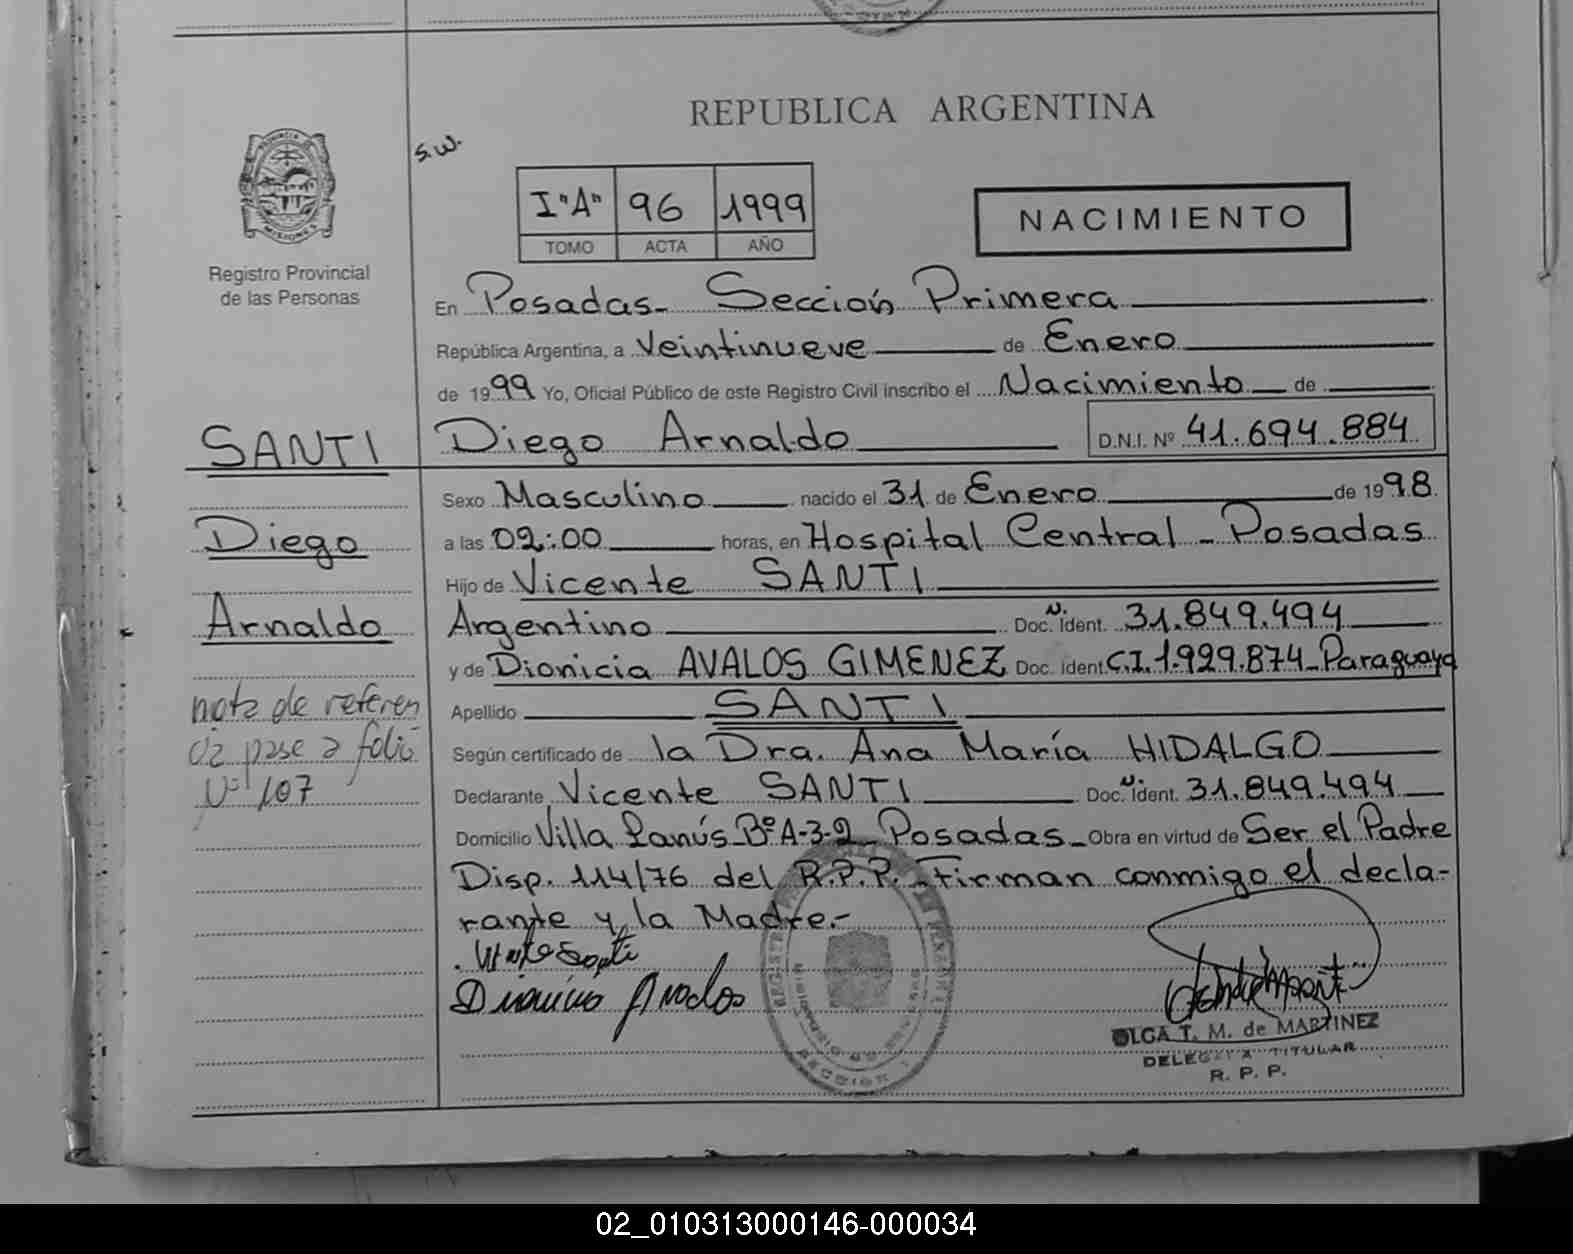 REPUBLICA ARGENTINA
S.W.
I"A" 96 1999
TOMO ACTA AÑO
NACIMIENTO
PROVINCIA DE
MISIONES
Registro Provincial
de las Personas
En Posadas- Sección Primera
República Argentina, a Veintinueve de Enero
de 1999 Yo, Oficial Público de este Registro Civil inscribo el Nacimiento de
SANTI
Diego Arnaldo D.N.I. Nº 41.694.884
Sexo Masculino nacido el 31 de Enero de 1998
Diego
Arnaldo
a las 02:00 horas, en Hospital Central - Posadas
Hijo de Vicente SANTI
Argentino Doc. N. Ident. 31.849.494
y de Dionicia AVALOS GIMENEZ Doc. Ident. C.I. 1.929.874-Paraguaya
Apellido SANTI
nota de referen
cia pase a folio
Nº 107
Según certificado de la Dra. Ana María HIDALGO
Declarante Vicente SANTI Doc. N. Ident. 31.849.494
Domicilio Villa Lanús-Bº A-3-2 Posadas- Obra en virtud de Ser el Padre
Disp. 114/76 del R.P.P.- Firman conmigo el decla-
rante y la Madre.-
OLGA T. M. de MARTINEZ
DELEGADA TITULAR
R. P. P.
02_010313000146-000034